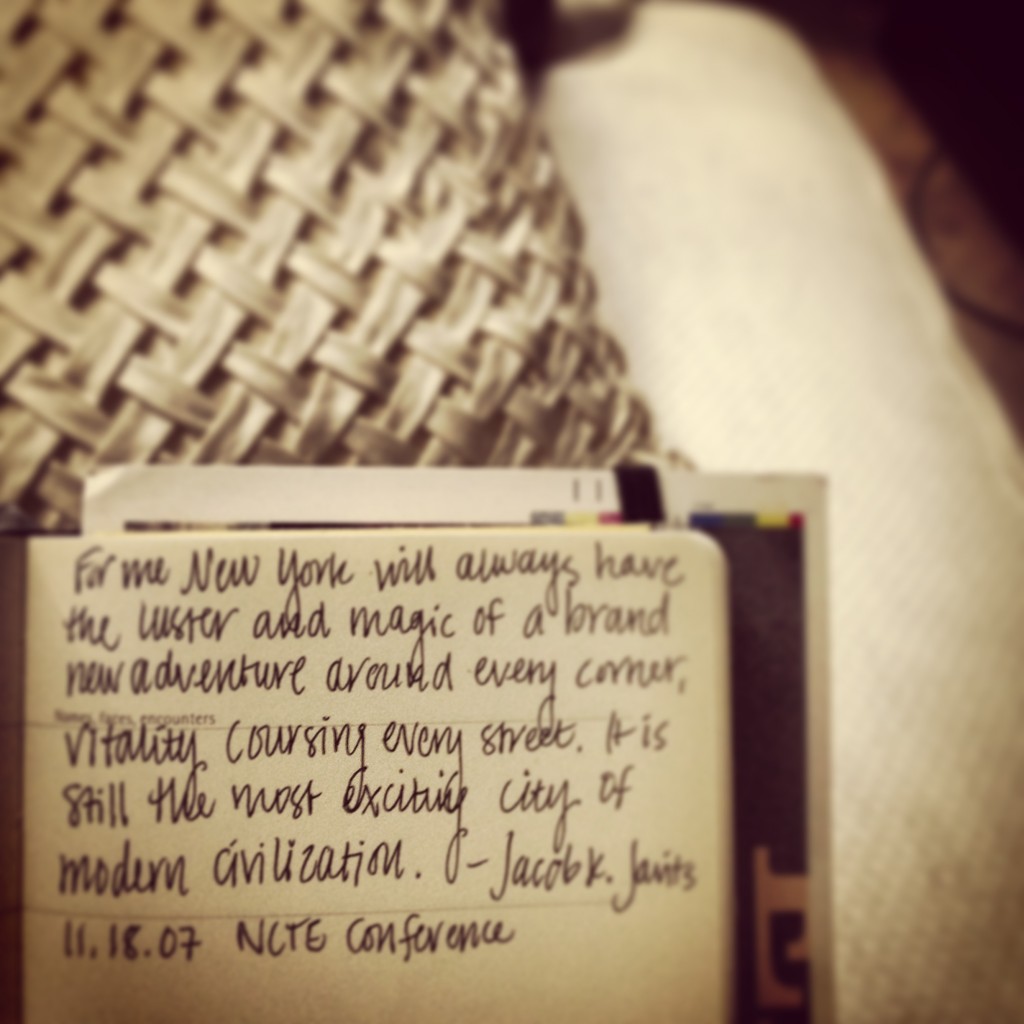 For me New York will always have
the luster and magic of a brand
new adventure around every corner,
Names, faces, encounters
Vitality coursing every street. It is
still the most exciting city of
modern civilization. - Jacob K. Javits
11.18.07 NCTE Conference